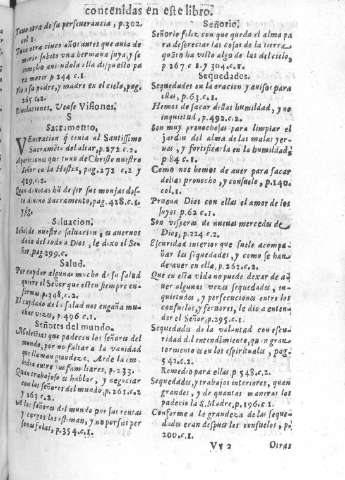 contenidas en este libro.
Tuuo otro de su perseuerancia, p.302.
col.2.
Tuuo otro cinco años antes que auia de
morir
244 c.1
Vio a su padre, y madre en el cielo, pag.
265 c.2.
Reuelaciones, Vease Visiones.
S
Sacramento,
VEneracion q̃ tenia al Santissimo
Sacramẽto del altar, p.272. c.2
Apariciones que tuuo de Christo nuestro
Señor en la Hostia, pag.272 c.2 y
419.c.2.
Que deuotas hã de ser sus monjas deste
diuino Sacramento, pag.428.c.1.
Saluacion.
Pēde de nuestro
dado del todo a Dios, le dixo el Se
ñor, pag.299.c.
Salud.
Por cuydar algunas mucho de su salud
quiere el Señor que estēn siempre en
fermas, p.308.c.2.
El cuydado de la salud nos engaña mu
chas vezes, p.496 c.1.
Señores del mundo.
Molestias que padecen los señores del
mundo, por no faltar a la vanidad
que llaman grandeza. Arde la em
bidia entre sus familiares, p.233.
Quan trabajoso es hablar, y negociar
con los señores del mundo, p.261.c.2
y 263 c.2.
Los señores del mundo por sus rentas
y cargos los estiman, y no por sus per
sonas solas, p.354.c.1.
Señorio.
Señorio feliz con que queda el alma pa
ra despreciar las cosas de la tierra
quãdo ha visto algo de las del cielo,
p.267 c.1 y 304.c.1.
Sequedades.
Sequedades en la oracion y auisos para
ellas, p.63.c.2.
Hemos de sacar destas humildad, y no
inquietud, p.492.c.2.
Son muy prouechosas para limpiar el
jardin del alma de las malas yer
uas, y fortificarla en la humildad,
p.84 c.1.
Como nos hemos de auer para sacar
dellas prouecho, y consuelo, p.140.
col.1.
Prueua Dios con ellas el amor de los
suyos p.62 c.1.
Son visperas de nueuas mercedes de
Dios, p.224 c.2.
Escuridad interior que suele acompa
ñar las sequedades, y como se han
de auer en ella, p.262.c.2.
Que en esta vida no puede dexar de a-
uer algunas vezes sequedades, in
quietudes, y persecuciones entre los
consuelos, y fauores, le dio a enten
der el Señor, p.295.c.1.
Sequedades de la voluntad con escu
ridad del entendimiento, quan gran
tormento es en los espirituales, pag.
542.c.2.
Remedio para ellas p 548.c.2.
Sequedades, y trabajos interiores, quan
grandes, y de quantas maneras los
padecio la S. Madre, p.196 c.1.
Conforme a la grandeza de las seque
dades eran despues los consuelos, p.
200.c.1.
Vv 2
Otras